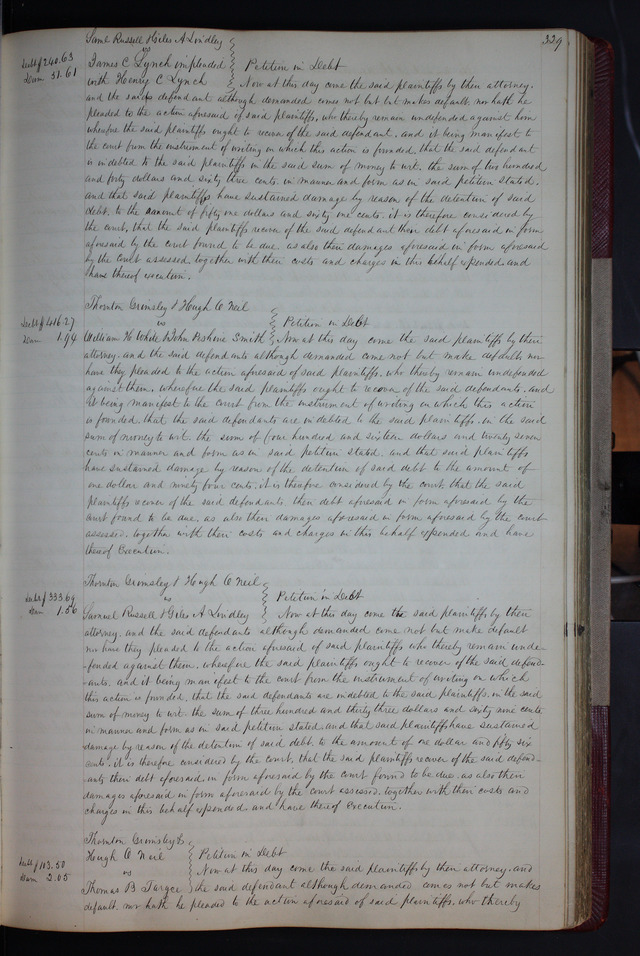 329
Saml Russell & Giles A Lindley
vs
Debt $ 240.63 James C Lynch impleaded Petition in Debt
Dam 51.61 with Henry C Lynch Now at this day come the said plaintiffs by their attorney.
and the said defendant although demanded comes not but but makes default, nor hath he
pleaded to the action aforesaid of said plaintiffs, who thereby remain undefended against him
wherefore the said plaintiffs ought to recover of the said defendant. and it being manifest to
the court from the instrument of writing on which this action is founded, that the said defendant
is indebted to the said plaintiffs in the said sum of money to wit. the sum of two hundred
and forty dollars and sixty three cents. in manner and form as in said petition stated.
and that said plaintiffs have sustained damage by reason of the detention of said
debt. to the amount of fifty one dollars and sixty one cents. it is therefore considered by
the court, that the said plaintiffs recover of the said defendant their debt aforesaid in form
aforesaid by the court found to be due. as also their damages aforesaid in form aforesaid
by the court assessed, together with their costs and charges in this behalf expended and
have thereof execution.
Thornton Grimsley & Hugh O Neil
Debt $ 416.27 vs Petition in Debt
Dam 1.94 William H White & John Peshine Smith Now at this day come the said plaintiffs by their
attorney. and the said defendants although demanded come not but make default, nor
have they pleaded to the action aforesaid of said plaintiffs, who thereby remain undefended
against them, wherefore the said plaintiffs ought to recover of the said defendants. and
it being manifest to the court from the instrument of writing on which this action
is founded, that the said defendants are indebted to the said plaintiffs. in the said
sum of money to wit. the sum of four hundred and sixteen dollars and twenty seven
cents in manner and form as in said petition stated. and that said plaintiffs
have sustained damage by reason of the detention of said debt to the amount of
one dollar and ninety four cents. it is therefore considered by the court, that the said
plaintiffs recover of the said defendants their debt aforesaid in form aforesaid by the
court found to be due, as also their damages aforesaid in form aforesaid by the court
assessed, together with their costs and charges in this behalf expended and have
thereof Execution.
Thornton Grimsley & Hugh O Neil
Debt $ 333.69 vs Petition in Debt
Dam 1.56 Samuel Russell & Giles A Lindley Now at this day come the said plaintiffs by their
attorney, and the said defendants although demanded come not but make default
nor have they pleaded to the action aforesaid of said plaintiffs who thereby remain unde-
-fended against them, wherefore the said plaintiffs ought to recover of the said defend-
-ants. and it being manifest to the court from the instrument of writing on which
this action is founded, that the said defendants are indebted to the said plaintiffs. in the said
sum of money to wit the sum of three hundred and thirty three dollars and sixty nine cents
in manner and form as in said petition stated. and that said plaintiffs have sustained
damage by reason of the detention of said debt, to the amount of one dollar and fifty six
cents. it is therefore considered by the court, that the said plaintiffs recover of the said defend-
-ants their debt aforesaid in form aforesaid by the court found to be due. as also their
damages aforesaid in form aforesaid by the court assessed. together with their costs and
charges in this behalf expended and have thereof Execution.
Thornton Grimsley &
Debt $ 103.50 Hugh O Neil Petition in Debt
Dam 2.05 vs Now at this day come the said plaintiffs by their attorney. and
Thomas B Targee the said defendant although demanded comes not but makes
default nor hath he pleaded to the action aforesaid of said plaintiffs. who thereby